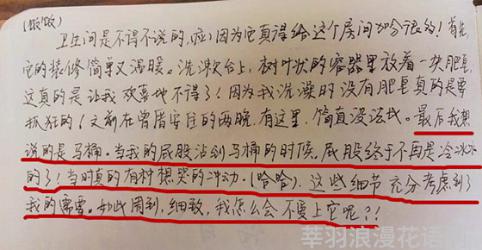 (嗷嗷)
卫生间是不得不说的,啦!因为它真得给这个房间加分很多!首先,
它的装修简单又温暖。洗漱台上,树叶状的容器里放着一块肥皂,
这真的是让我欢喜地不得了!因为我洗澡时没有肥皂真的是要
抓狂的!之前在曾厝安住的两晚,有这里,简直没法比。最后我想
说的是马桶。当我的屁股沾到马桶的时候,屁股终于不再是冷冰冰
的了!当时真的有种想哭的冲动。(哈哈)。这些细节充分考虑到了
我的需要。如此周到,细致,我怎么会不爱上它呢?!
莘羽浪漫花语